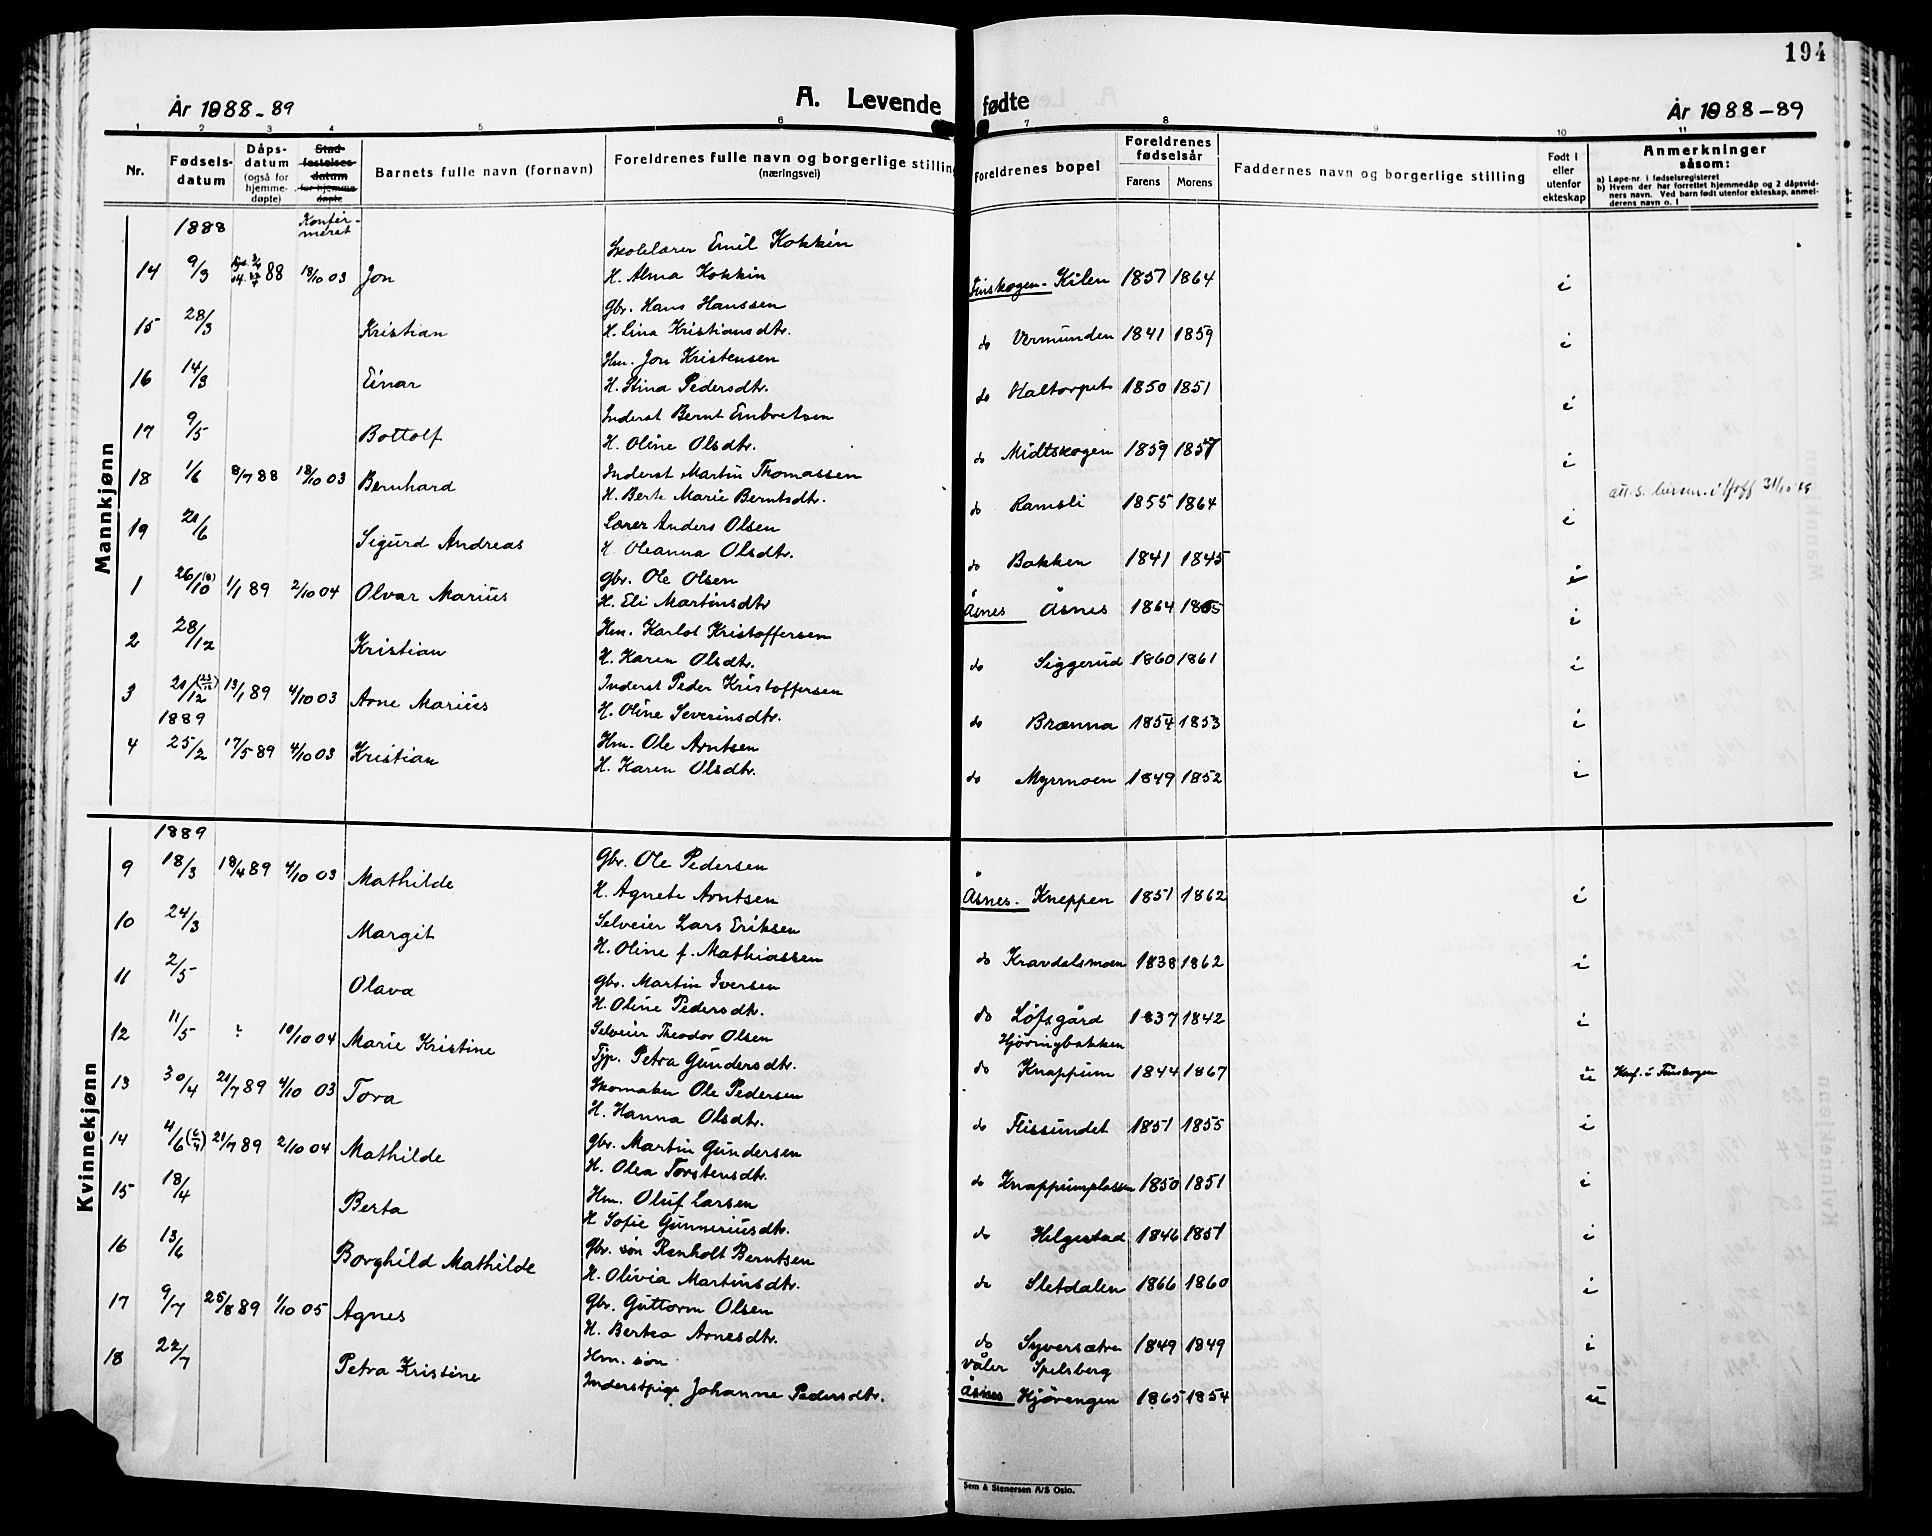 194
År 1888-89
A. Levende fødte
År 1888-89
1 2 3 4 5 6 7 8 9 10 11
Nr.
Fødsels-
datum
Dåps-
datum
(også for
hjemme-
døpte)
Stad-
festelses-
datum
for hjemme
døpte
Barnets fulle navn (fornavn)
Foreldrenes fulle navn og borgerlige stilling
(næringsvei)
Foreldrenes bopel
Foreldrenes
fødselsår
Farens Morens
Faddernes navn og borgerlige stilling
Født i
eller
utenfor
ekteskap
Anmerkninger
såsom:
a) Løpe-nr. i fødselsregisteret
b) Hvem der har forrettet hjemmedåp og 2 dåpsvid-
ners navn. Ved barn født utenfor ekteskap, anmel-
derens navn o. l
Mannkjønn
1888
Konfir-
meret
Skolelærer Emil Kokkin
14 9/3 88 18/10 03 Jon H. Alma Kokkin Finskogen - Kilen 1857 1864 i
Gbr. Hans Hanssen
15 28/3 Kristian H. Lina Kristiansdtr. do Vermunden 1841 1859 i
Hm. Jon Kristensen
16 14/3 Einar H. Stina Pedersdtr. do Haltorpet 1850 1851 i
Inderst Bernt Embretsen
17 9/5 Bottolf H. Oline Olsdtr. do Midtskogen 1859 1857 i
Inderst Martin Thomassen
18 1/6 8/7 88 18/10 03 Bernhard H. Berte Marie Berntsdtr. do Ramsli 1855 1864 i
Lærer Anders Olsen
19 21/6 Sigurd Andreas H. Oleanna Olsdtr. do Bakken 1841 1845 i
Gbr. Ole Olsen
1 26/10 1/1 89 2/10 04 Olvar Marius H. Eli Martinsdtr Åsnes Åsnes 1864 1865 i
Hm. Karlot Kristoffersen
2 28/12 Kristian H. Karen Olsdtr. do Siggerud 1860 1861 i
Inderst Peder Kristoffersen
3 21/12 (23/12) 13/1 89 4/10 03 Arne Marius H. Oline Severinsdtr. do Brænna 1854 1853 i
1889
Hm. Ole Arntsen
4 25/2 17/5 89 4/10 03 Kristian H. Karen Olsdtr. do Myrmoen 1849 1852 i
Kvinnekjønn
1889
Gbr. Ole Pedersen
9 18/3 18/4 89 4/10 03 Mathilde H. Agnete Arntsen Åsnes - Kneppen 1851 1862 i
Selveier Lars Eriksen
10 24/3 Margit H. Oline f. Mathiassen do Kravdalsmoen 1838 1862 i
Gbr. Martin Iversen
11 2/5 Olava H. Oline Pedersdtr. do Löfsgård 1837 1842 i
Selveier Theodor Olsen Hjøringbakken
12 11/5 ? 10/10 04 Marie Kristine Tjp. Petra Gundersdtr. do Knappum 1844 1867 u Konf. i Finskogen
Skomaker Ole Pedersen
13 30/4 21/7 89 4/10 03 Tora H. Hanna Olsdtr. do Flissundet 1851 1855 i
Gbr. Martin Gundersen
14 4/6 21/7 89 2/10 04 Mathilde H. Olea Torstensdtr. do Knappumplassen 1850 1851 i
Hm. Oluf Larsen
15 18/4 Berta H Sofie Gunneriusdtr. do Helgestad 1846 1851 i
Gbr. søn Renholt Berntsen
16 13/6 Borghild Mathilde H. Olivia Martinsdtr. do Sletdalen 1866 1860 i
Gbr. Guttorm Olsen
17 9/7 25/8 89 1/10 05 Agnes H. Bertea Arnesdtr. do Syversætre 1849 1849 i
Hm. søn Våler Spelsberg
18 22/7 Petra Kristine Inderstpige Johanne Pedersdtr. Åsnes Hjörengen 1865 1854 u
Sem & Stenersen A/S Oslo.